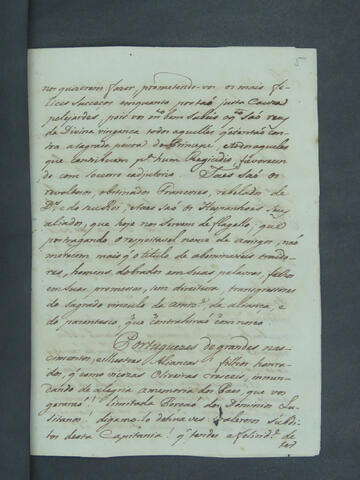 5
nos quizerem fazer, prometendo-vos os mais fe-
lices successos emquanto por taõ justa Cauza
pelejardes, pois vós m.to bem Sabeis q̃ saõ reos
da Divina vingança todos aquelles q̃ atentaõ con-
tra a sagrada pessoa do Principe, e todos aquelles
que contribuem p.a hum Regicidio, favorecen-
do com socorro e adjutorio. Taes saõ os
revoltozos, obstinados Francezes, rebelados de
D.s e do seu Rei, e taes saõ os Hespanhoes seus
aliados, que hoje nos servem de flagello, que
postergando o respeitavel nome de amigos, naõ
merecem mais q̃ o titulo de abominaveis traido-
res, homens dobrados em suas palavras, falsos
em suas promessas, sem direitura, transgressores
do sagrado vinculo da amiz.e, da aliança, e
do parentesco, que contrahiraõ comnosco.
Portuguezes de grandes nas-
cimentos, e illustres Alianças! filhos honra-
dos, q̃ como viçozas Oliveiras cresceis, innun-
dando de alegria a memoria dos Paes, que vos
geraraõ! limitada Porçaõ dos Dominios Lu-
sitanos! digamo-lo de huma ves: valerozos Subdi-
tos desta Capitania! q̃ tendes a felicid.e de
ter